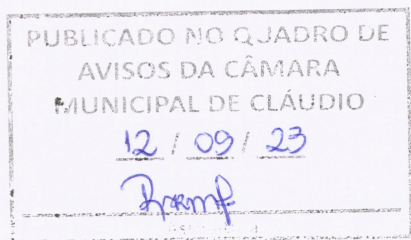 PUBLICADO NO QUADRO DE
AVISOS DA CÂMARA
MUNICIPAL DE CLÁUDIO
12 / 09 / 23